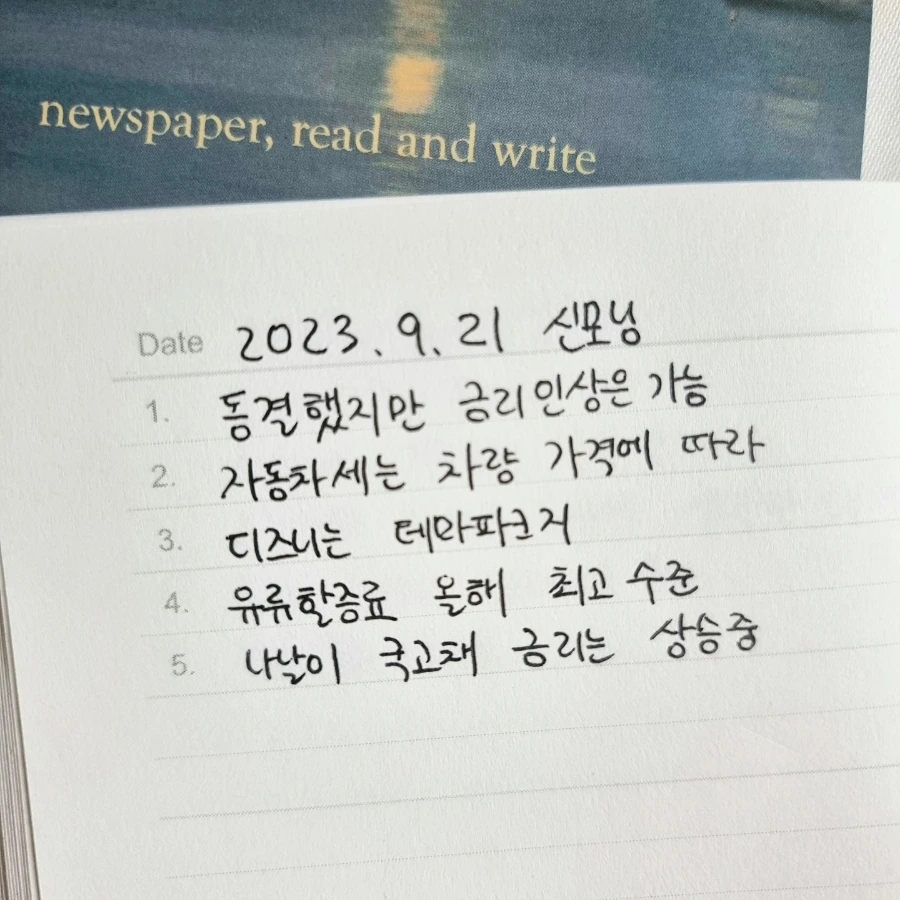 newspaper, read and write
Date 2023. 9. 21 신모닝
1. 동결했지만 금리인상은 가능
2. 자동차세는 차량 가격에 따라
3. 디즈니는 테마파크지
4. 유류할증료 올해 최고 수준
5. 나날이 국고채 금리는 상승중